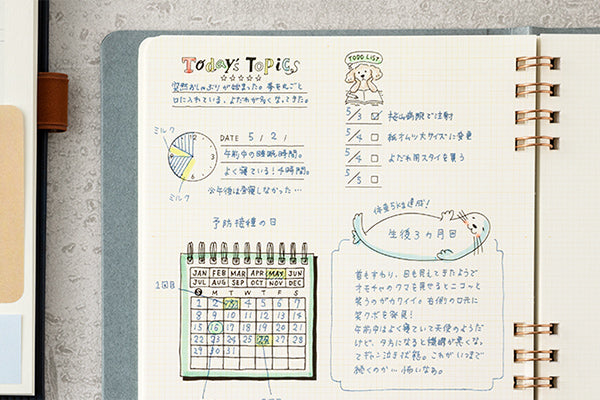 Today's Topics
突然おしゃぶりが始まった。手を丸ごと
口に入れている。よだれが多くなってきた。
ミルク
12
3
6
ミルク
DATE 5/2/
午前中の睡眠4時間。
よく寝ている!4時間。
今午後は昼寝しなかった…
TODO LIST
5/3 桜山病院で注射
5/4 紙オムツ大サイズに変更
5/4 よだれ用スタイを買う
5/5
予防接種の日
1回目
JAN FEB MAR APR MAY JUN
JUL AUG SEP OCT NOV DEC
S M T W T F S
1 2 3 4 5 6 7
8 9 10 11 12 13 14
15 16 17 18 19 20 21
22 23 24 25 26 27 28
29 30 31
体重5kg達成!
生後3ヵ月目
首もすわり、目も見えてきたようで
オモチャのクマを見せるとニコーッと
笑うのがカワイイ。右側の口元に
笑クボを発見!
午前中はよく寝ていて天使のようだ
けど、夕方になると機嫌が悪くなっ
てギャン泣き状態。これがいつまで
続くのか… 怖いなぁ。